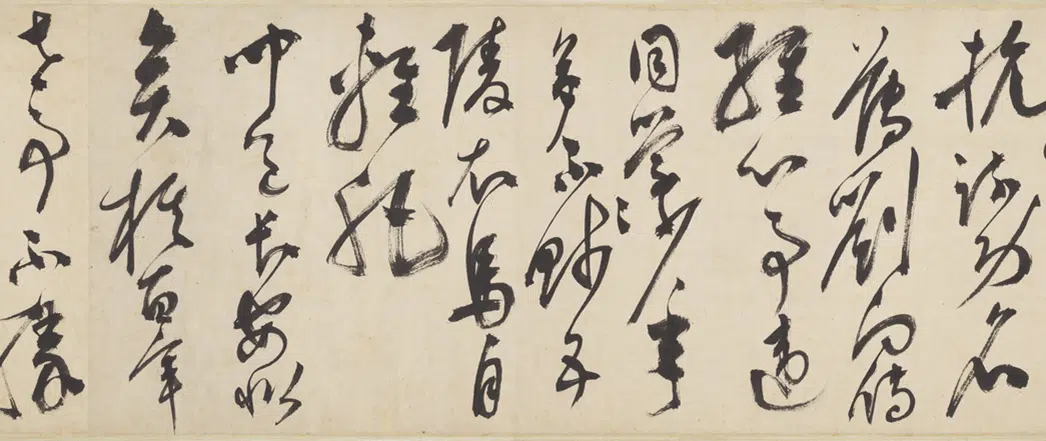 抗疏功名
薄劉向傳
經心事違
同學少年
多不賤五
陵衣馬自
輕肥
聞道長安似
奕棋百年
世事不勝